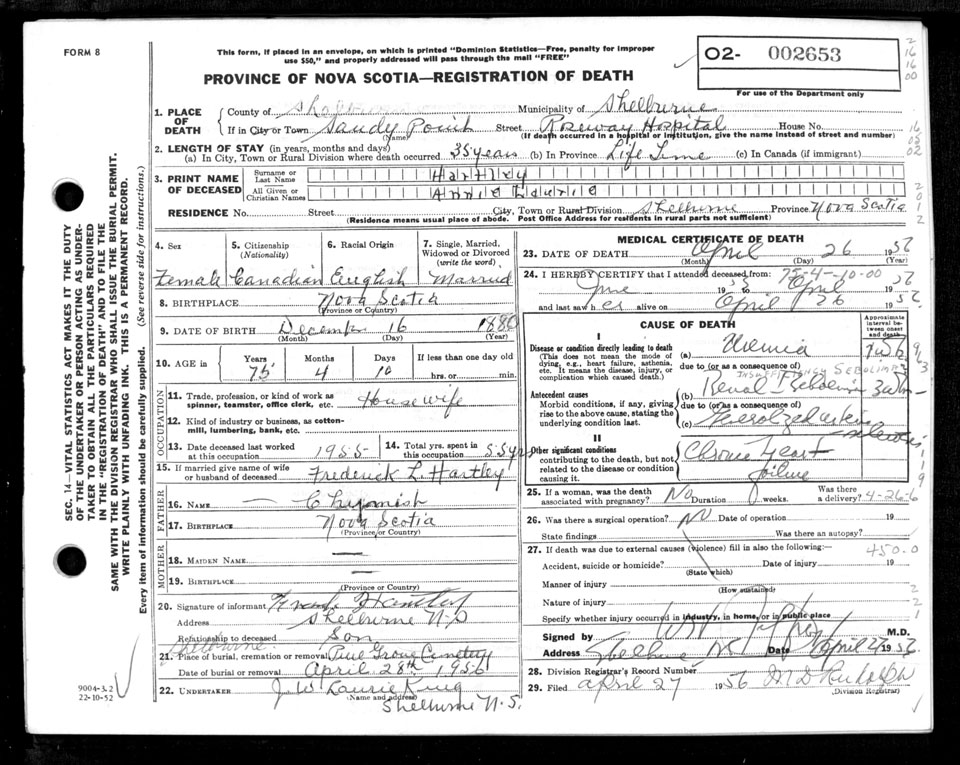 FORM 8
This form, if placed in an envelope, on which is printed "Dominion Statistics—Free, penalty for improper
use $50," and properly addressed will pass through the mail "FREE"
PROVINCE OF NOVA SCOTIA—REGISTRATION OF DEATH
O2- 002653
For use of the Department only
1. PLACE OF DEATH
County of Shelburne Municipality of Shelburne
If in City or Town Sandy Point Street Roseway Hospital House No.
(Name) (If death occurred in a hospital or institution, give the name instead of street and number)
2. LENGTH OF STAY (in years, months and days)
(a) In City, Town or Rural Division where death occurred 35 years (b) In Province Life Time (c) In Canada (if immigrant)
3. PRINT NAME OF DECEASED
Surname or Last Name Hartley
All Given or Christian Names Annie Laurie
RESIDENCE No. Street City, Town or Rural Division Shelburne Province Nova Scotia
(Residence means usual place of abode. Post Office Address for residents in rural parts not sufficient)
4. Sex Female
5. Citizenship (Nationality) Canadian
6. Racial Origin English
7. Single, Married, Widowed or Divorced (write the word) Married
8. BIRTHPLACE Nova Scotia
(Province or Country)
9. DATE OF BIRTH December 16 1880
(Month) (Day) (Year)
10. AGE in Years Months Days If less than one day old
75 4 10 hrs. or min.
OCCUPATION
11. Trade, profession, or kind of work as spinner, teamster, office clerk, etc. Housewife
12. Kind of industry or business, as cotton-mill, lumbering, bank, etc.
13. Date deceased last worked at this occupation 1955
14. Total yrs. spent in this occupation 55 yrs
15. If married give name of wife or husband of deceased Frederick L. Hartley
FATHER
16. NAME
17. BIRTHPLACE Nova Scotia
(Province or Country)
MOTHER
18. MAIDEN NAME —
19. BIRTHPLACE —
(Province or Country)
20. Signature of informant Frank Hartley
Address Shelburne N.S
Relationship to deceased Son
Shelburne
21. Place of burial, cremation or removal Pine Grove Cemetery
Date of burial or removal April 28th 1956
22. UNDERTAKER J. W. Laurie King
(Name and address)
Shelburne N.S.
9004-3.2
22-10-52
SEC. 14—VITAL STATISTICS ACT MAKES IT THE DUTY
OF THE UNDERTAKER OR PERSON ACTING AS UNDER-
TAKER TO OBTAIN ALL THE PARTICULARS REQUIRED
IN THE "REGISTRATION OF DEATH" AND TO FILE THE
SAME WITH THE DIVISION REGISTRAR WHO SHALL ISSUE THE BURIAL PERMIT.
WRITE PLAINLY WITH UNFADING INK. THIS IS A PERMANENT RECORD.
Every item of information should be carefully supplied. (See reverse side for instructions.)
MEDICAL CERTIFICATE OF DEATH
23. DATE OF DEATH April 26 1956
(Month) (Day) (Year)
24. I HEREBY CERTIFY that I attended deceased from: 75-4-10-00
June 1956 to April 1956
and last saw her alive on April 26 1956
CAUSE OF DEATH
Approximate interval between onset and death
I
Disease or condition directly leading to death
(This does not mean the mode of dying, e.g., heart failure, asthenia, etc. It means the disease, injury, or complication which caused death.)
(a) Uremia 1 wk
due to (or as a consequence of)
INSUFFICIENCY
Antecedent causes
Morbid conditions, if any, giving rise to the above cause, stating the underlying condition last.
(b) Renal
due to (or as a consequence of)
(c)
II
Other significant conditions
contributing to the death, but not related to the disease or condition causing it.
Chronic Heart
failure
25. If a woman, was the death associated with pregnancy? No Duration weeks. Was there a delivery? 4-26-6
26. Was there a surgical operation? No Date of operation 19
State findings Was there an autopsy?
27. If death was due to external causes (violence) fill in also the following:— 450.0
Accident, suicide or homicide? Date of injury 19
(State which)
Manner of injury
(How sustained)
Nature of injury
Specify whether injury occurred in industry, in home, or in public place
Signed by M.D.
Address Shelburne NS Date April 27 1956
28. Division Registrar's Record Number
29. Filed April 27 1956
(Division Registrar)